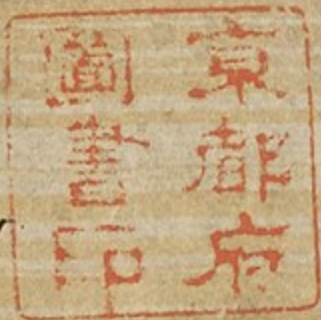 京都府
圖書印